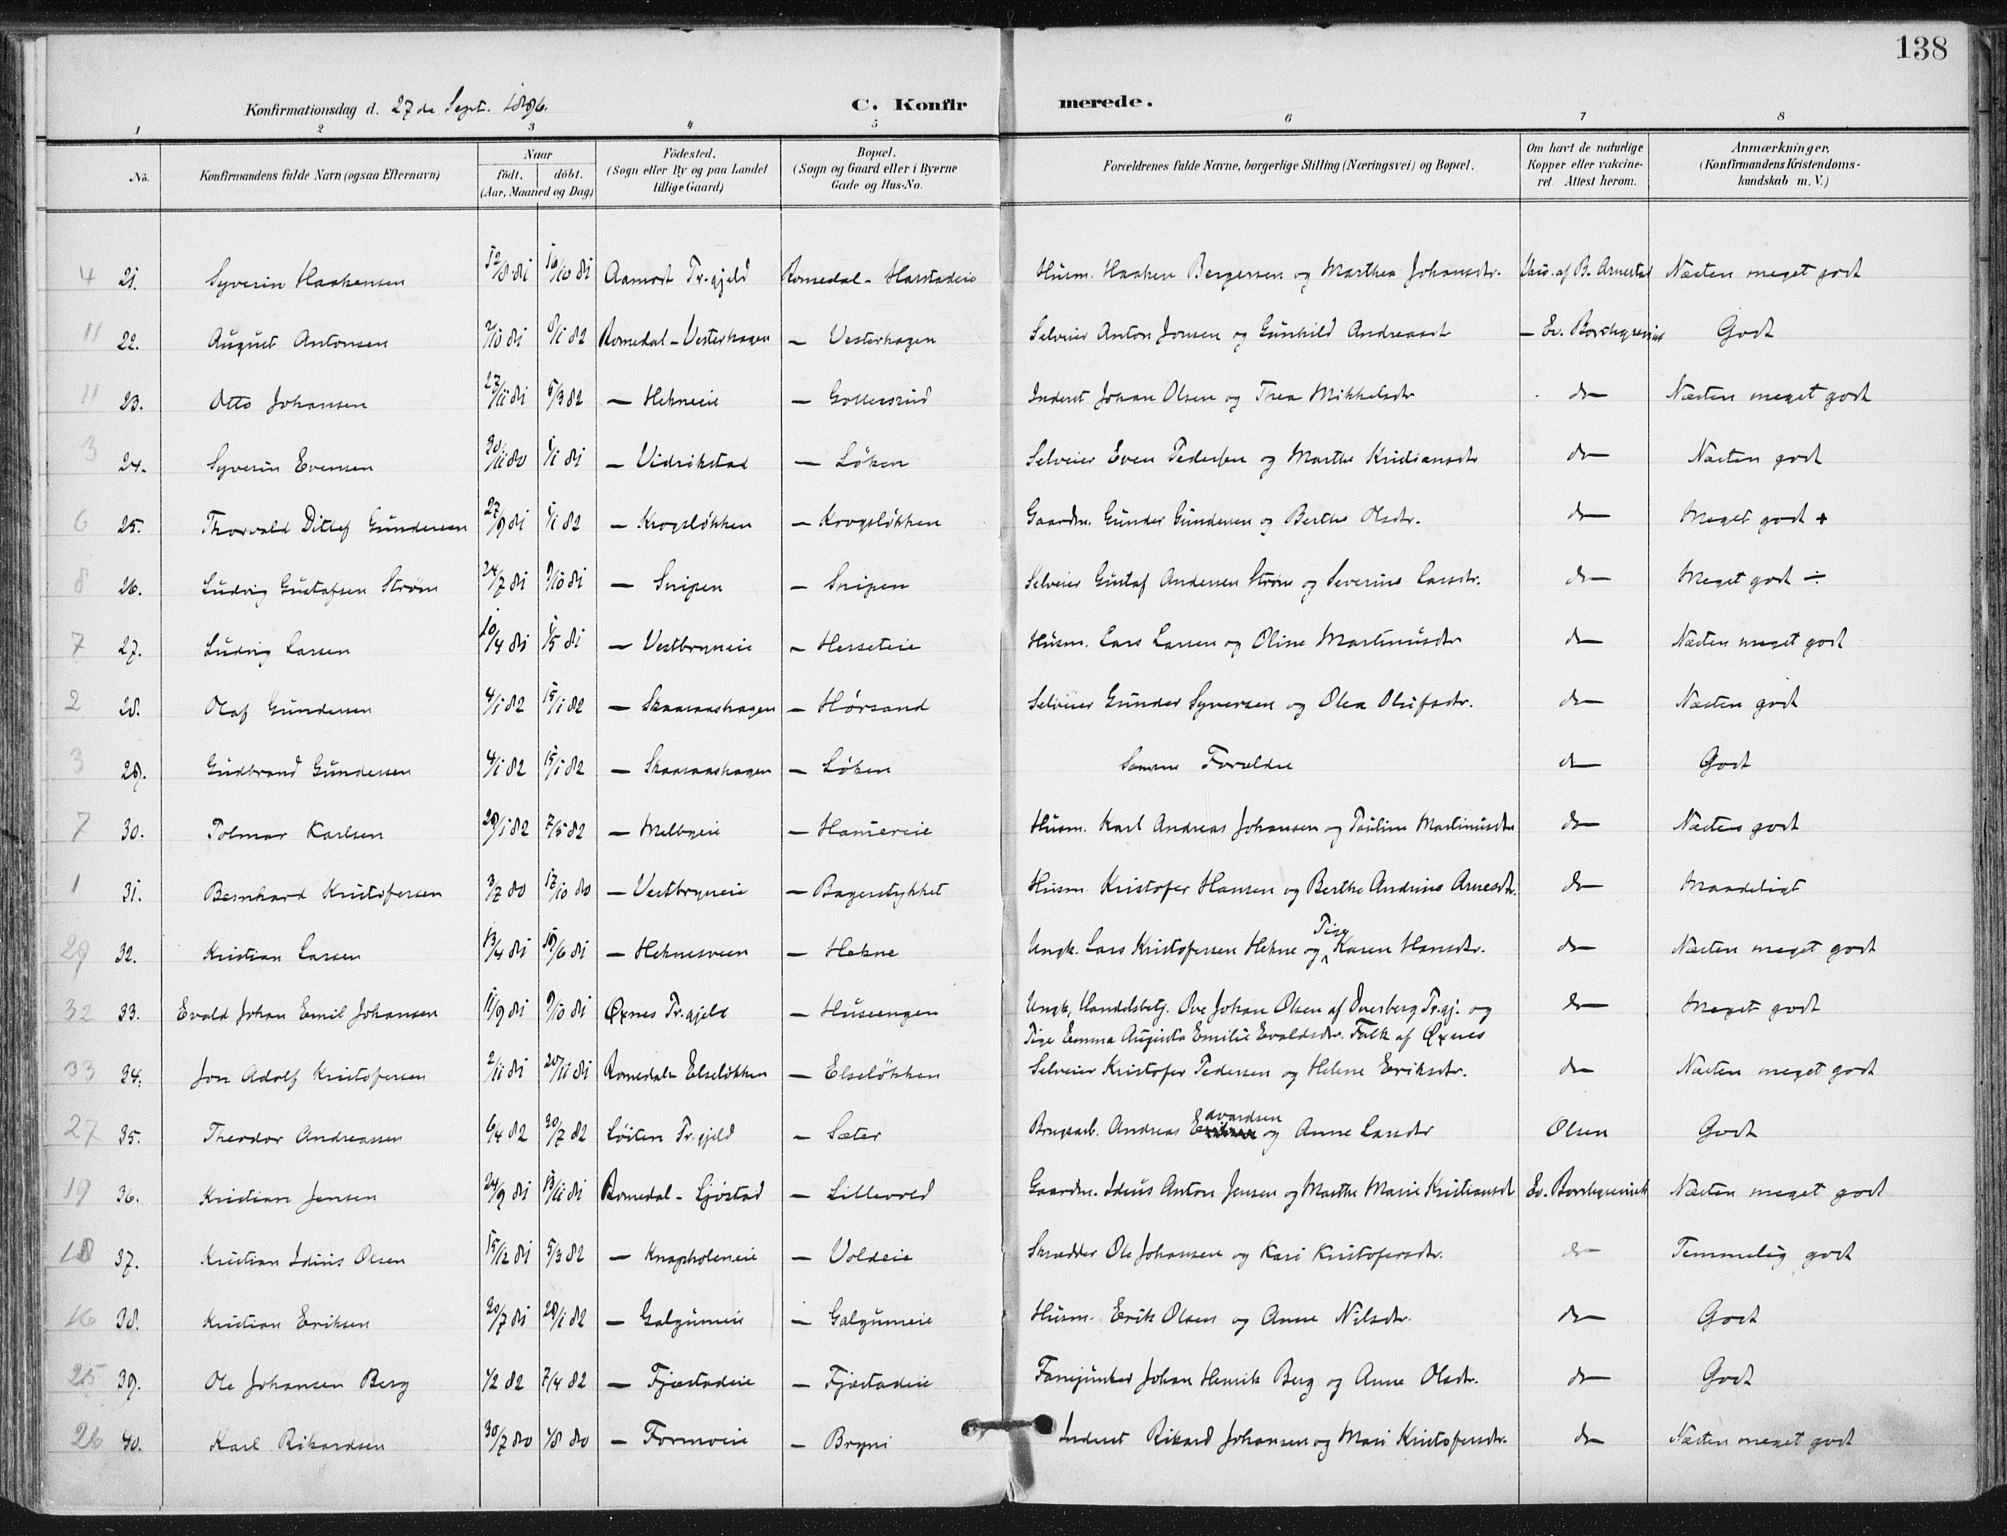 138
Konfirmationsdag d. 27de Sept. 1896.
C. Konfirmerede.
1 2 3 4 5 6 7 8
No. Konfirmandens fulde Navn (ogsaa Efternavn) Naar født. døbt. (Aar, Maaned og Dag) Fødested. (Sogn eller By og paa Landet tillige Gaard) Bopæl. (Sogn og Gaard eller i Byerne Gade og Hus-No. Forældrenes fulde Navne, borgerlige Stilling (Næringsvei) og Bopæl. Om havt de naturlige Kopper eller vakcineret. Attest herom. Anmærkninger. (Konfirmandens Kristendomskundskab m. V.)
4 21. Syverin Haakensen 12/8 81 16/10 81 Aamodt Pr.gjeld Romedal - Harstadeie Husm. Haaken Bergersen og Marthea Johansdtr. af B. Arnestad Næsten meget godt
11 22. August Antonsen 2/10 81 8/1 82 Romedal - Vesterhagen — Vesterhagen Selveier Anton Jonsen og Gunhild Andreasdt — Ev. Borchgrevink Godt
11 23. Otto Johansen 27/11 81 5/3 82 — Hekneie — Gottersrud Inderst Johan Olsen og Thea Mikkelsdtr do Næsten meget godt
3 24. Syverin Evensen 30/11 80 1/1 81 — Vidrikstad — Løken Selveier Even Pedersen og Marthe Kristiansdtr do Næsten godt
6 25. Thorvald Ditlef Gundersen 27/9 81 1/1 82 — Krogsløkken — Krogsløkken Gaardm. Gunder Gundersen og Berthe Olsdtr. do Meget godt +
8 26. Ludvig Gustafsen Strøm 24/7 81 9/10 81 — Snipen — Snipen Selveier Gustaf Andersen Strøm og Severine Larsdtr. do Meget godt ÷
7 27. Ludvig Larsen 10/4 81 1/5 81 — Vestbryneie — Hesseteie Husm. Lars Larsen og Oline Martinusdtr do Næsten meget godt
2 28. Olaf Gundersen 4/1 82 15/1 82 — Skaaraashagen — Hørsand Selveier Gunder Syversen og Olea Olufsdtr. do Næsten godt
3 29. Gudbrand Gundersen 4/1 82 15/1 82 — Skaaraashagen — Løken Samme Forældre do Godt
7 30. Polmar Karlsen 29/1 82 7/5 82 — Melbyeie — Hamereie Husm. Karl Andreas Johansen og Pauline Martinusdtr do Næsten godt
1 31. Bernhard Kristofersen 3/7 80 17/10 80 — Vestbryneie — Bagerstykket Husm Kristofer Hansen og Berthe Andrine Arnesdtr. do Maadeligt
29 32. Kristian Larsen 13/4 81 19/6 81 — Heknesveen — Hekne Ungk. Lars Kristofersen Hekne og Pige Karen Hansdtr. do Næsten meget godt
32 33. Evald Johan Emil Johansen 11/9 81 9/10 81 Øxnes Pr.gjeld — Husengen Ungk, Handelsbetj. Ove Johan Olsen af Pr.gj. og do Meget godt
Pige Emma Augusta Emilie Evaldsdtr. Falk af Øxnes
33 34. Jon Adolf Kristofersen 2/11 81 20/11 81 Romedal - Elseløkken — Elseløkken Selveier Kristofer Pedersen og Helene Eriksdtr. do Næsten meget godt
27 35. Theodor Andreassen 6/4 82 20/7 82 Løiten Pr.gjeld — Sæter Brugsarb. Andreas Edvardsen og Anne Larsdtr Olsen Godt
19 36. Kristian Jensen 24/9 81 13/11 81 Romedal - Ljøstad — Lillevold Gaardm. Idius Anton Jensen og Marthe Marie Kristiansdt Ev. Borchgrevink Næsten meget godt
18 37. Kristian Idius Olsen 15/12 81 5/3 82 — Knapholeneie — Voldeie Skrædder Ole Johansen og Kari Kristofersdtr. do Temmelig godt
16 38. Kristian Eriksen 20/7 81 29/1 82 — Galgumeie — Galgumeie Husm. Erik Olsen og Anne Nilsdtr. do Godt
25 39. Ole Johansen Berg 1/2 82 7/4 82 — Fjæstadeie — Fjæstadeie Fanejunker Johan Henrik Berg og Anne Olsdtr. do Godt
26 40. Karl Rikardsen 30/7 80 1/8 80 — Formoeie — Bryni Inderst Rikard Johansen og Mari Kristofersdtr. do Næsten meget godt